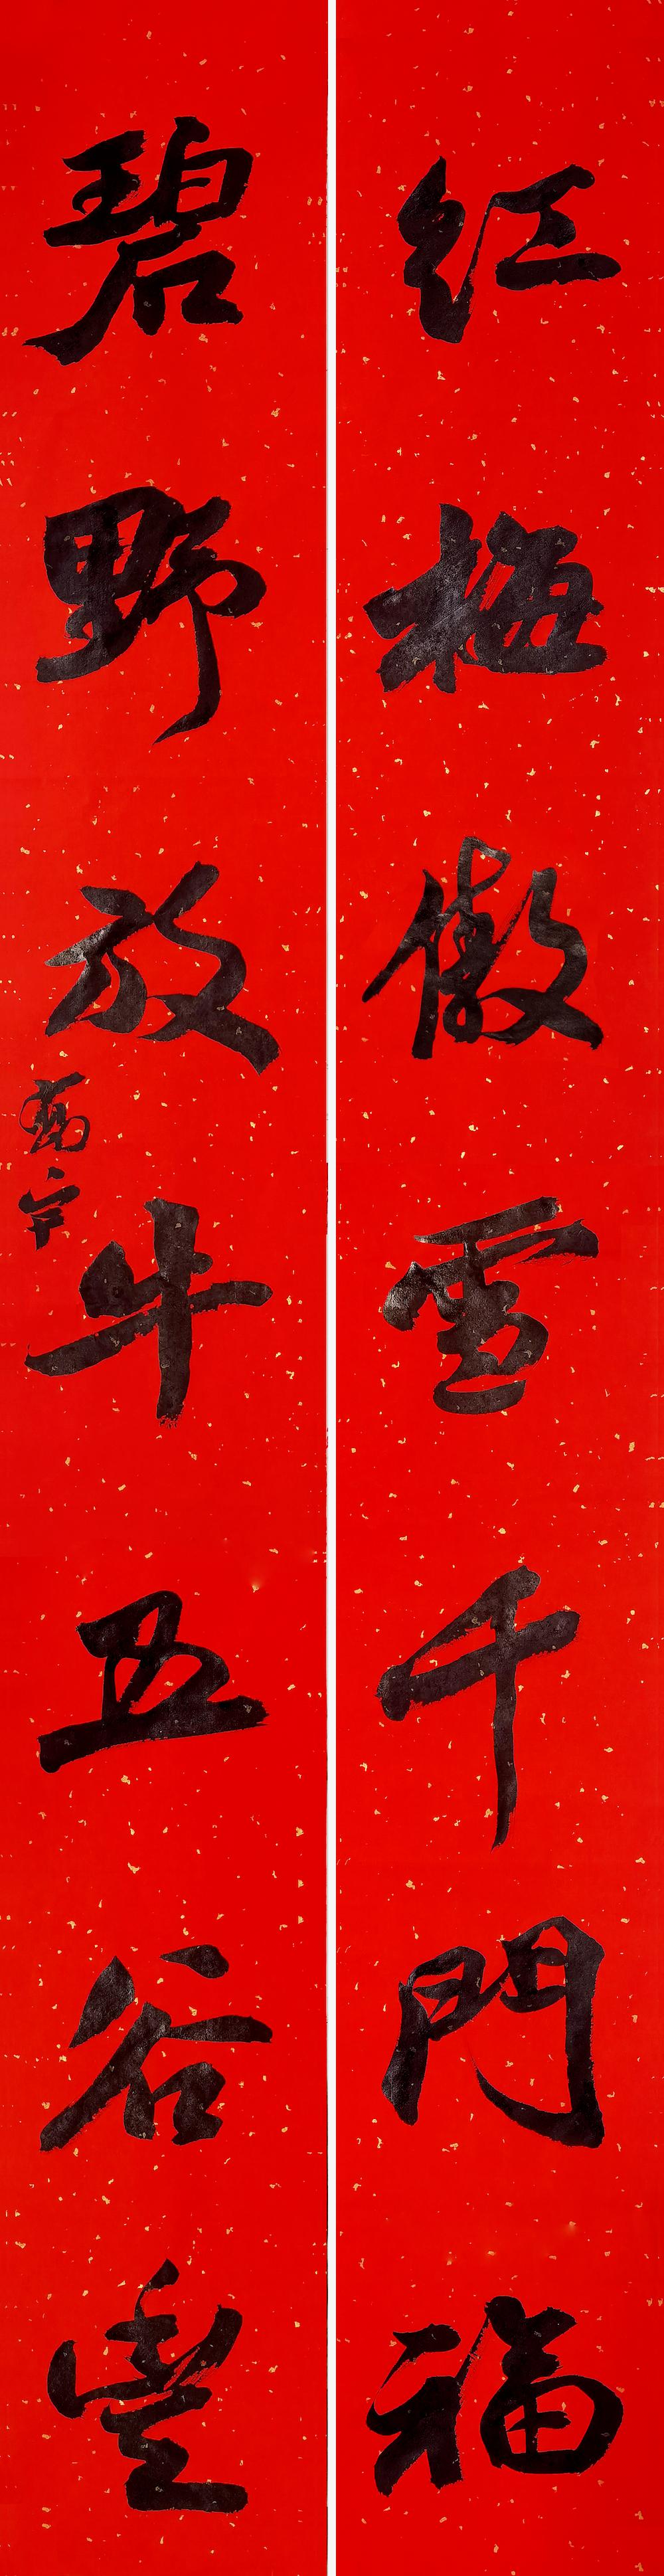 红梅傲雪千門福
碧野放牛五谷豐